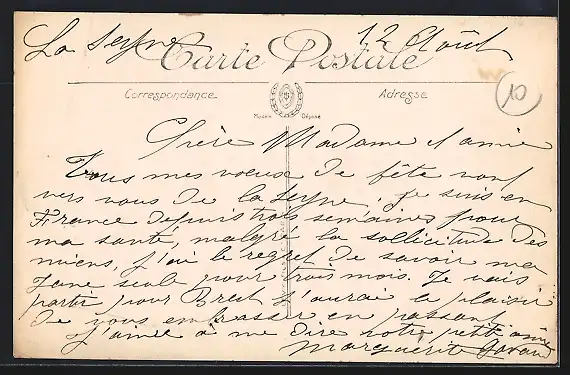 La Seyne 12 Août
Carte Postale
Correspondance Adresse
10
Modèle Déposé
Chère Madame et amie
Tous mes voeux de fête vont
vers vous de la Seyne, je suis en
France depuis trois semaines pour
ma santé, malgré la sollicitude des
miens, j'ai le regret de savoir ma
seule pour trois mois. Je vais
partir pour Brest j'aurai le plaisir
de vous embrasser en passant
J'aime à me dire votre petite amie
Marguerite